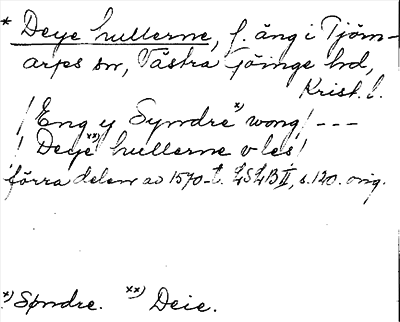 * Deye hullerne, f. äng i Tjörn-
arps sn, Västra Göinge hd,
Krist. l.
/Eng y Syndre*) wong/ ---
/Deye**) hullerne vles/
förra delen av 1570-t. LSLB II, s. 120. orig.
*) Søndre. **) Deie.